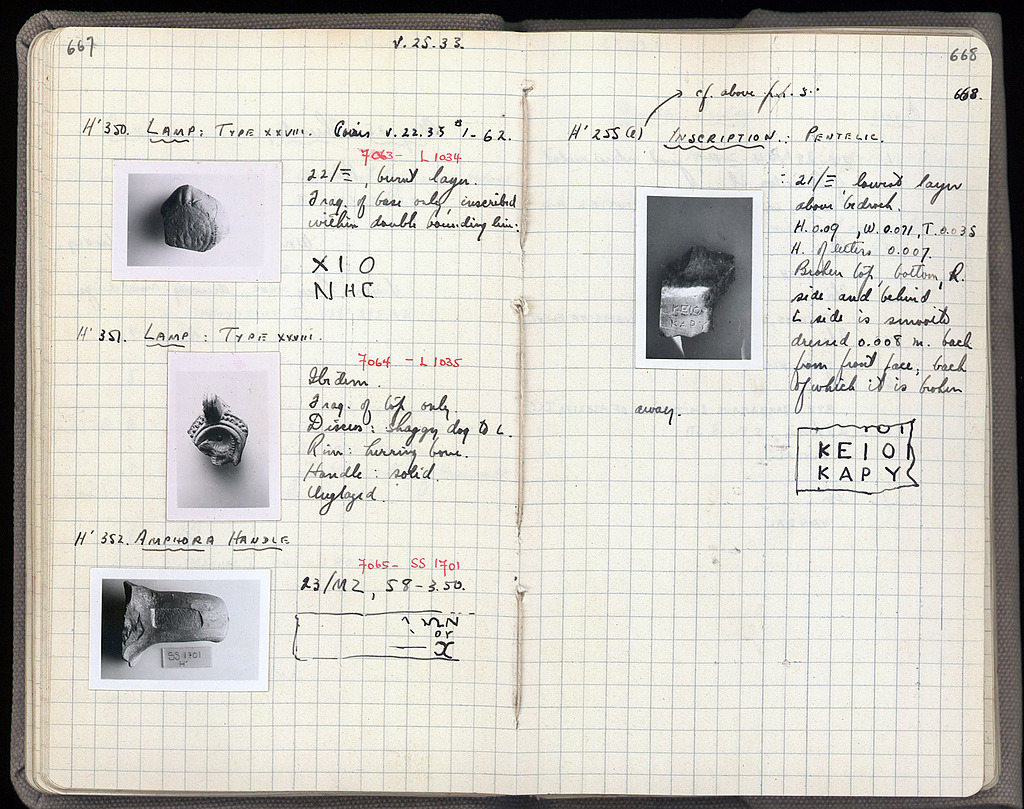 667
V.25.33.
H' 350. LAMP: TYPE XXVIII. Coins V.22.33 #1-62.
7063- L 1034
22/Ξ, burnt layer.
Frag. of base only, inscribed
within double bounding line:
ΧΙΟ
ΝΗC
H' 351. LAMP: TYPE XXVIII.
7064 - L 1035
Ibidem.
Frag. of top only.
Discus: shaggy dog to L.
Rim: herring bone.
Handle: solid.
Unglazed.
H' 352. AMPHORA HANDLE
7065- SS 1701
23/ΜΖ, 58-3.50.
ΩΝ
or
SS 1701
H'
668
cf. above pp.
668.
H' 255 (e) INSCRIPTION: PENTELIC.
: 21/Ξ, lowest layer
above bedrock.
H. 0.09, W. 0.071, T. 0.035
H. of letters 0.007.
Broken top, bottom, R.
side and behind
L side is smooth
dressed 0.008 m. back
from front face, back
of which it is broken
away.
ΚΕΙΟ
ΚΑΡΥ